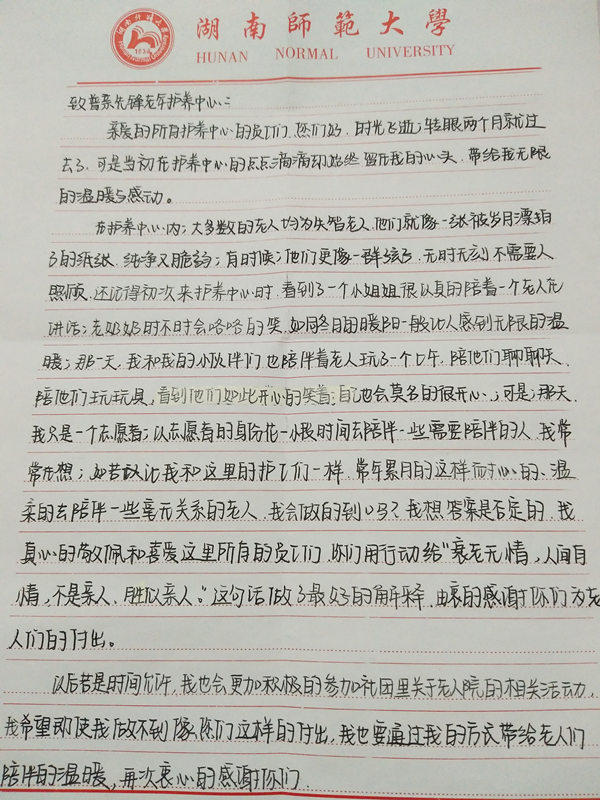 湖南師範大學
HUNAN NORMAL UNIVERSITY
1938
致普亲先锋老年护养中心:
亲爱的所有护养中心的员工们,您们好,时光飞逝;转眼两个月就过
去了,可是当初在护养中心的点点滴滴却始终留在我的心头,带给我无限
的温暖与感动。
在护养中心内;大多数的老人均为失智老人,他们就像一张被岁月漂泊
了的纸张,纯净又脆弱;有时候;他们更像一群孩子,无时无刻不需要人
照顾,还记得初次来护养中心时,看到了一个小姐姐很认真的陪着一个老人在
讲话;老奶奶时不时会咯咯的笑,如同冬日的暖阳一般让人感到无限的温
暖;那一天,我和我的小伙伴们也陪伴着老人玩了一个上午,陪他们聊聊天,
陪他们玩玩具,看到他们如此开心的笑着;自己也会莫名的很开心;可是;那天,
我只是一个志愿者;以志愿者的身份花一小段时间去陪伴一些需要陪伴的人,我常
常在想;如若让我和这里的护工们一样,常年累月的这样耐心的、温
柔的去陪伴一些毫无关系的老人,我会做的到吗?我想答案是否定的,我
真心的敬佩和喜爱这里所有的员工们,你们用行动给“衰老无情,人间有
情,不是亲人,胜似亲人。”这句话做了最好的解释,由衷的感谢你们为老
人们的付出。
以后若是时间允许,我也会更加积极的参加社团里关于老人院的相关活动,
我希望即使我做不到像您们这样的付出,我也要通过我的方式带给老人们
陪伴的温暖,再次衷心的感谢你们